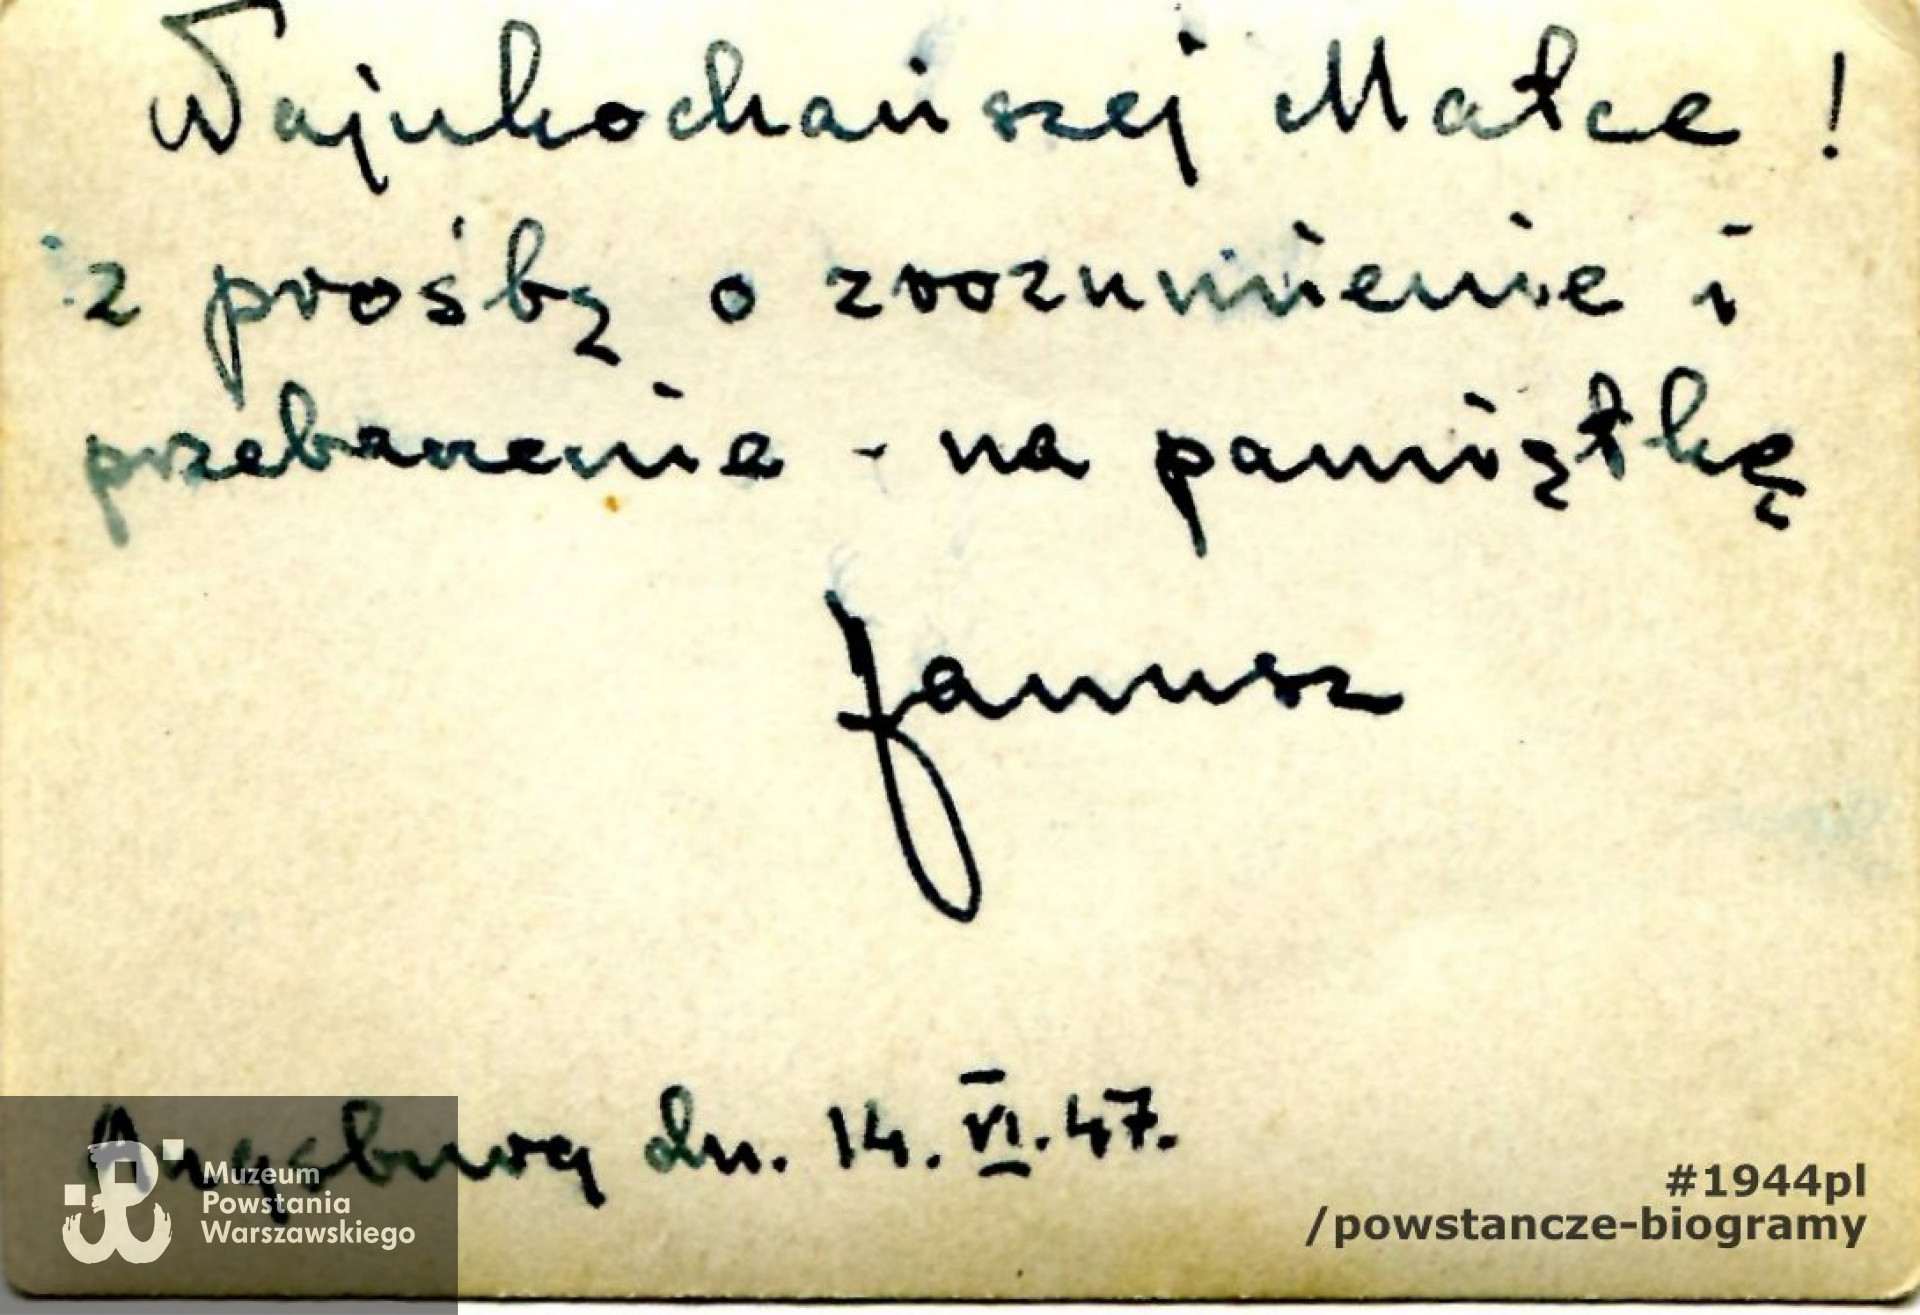 Najukochańszej Matce!
z prośbą o zrozumienie i
przebaczenie - na pamiątkę
Janusz
Augsburg dn. 14.VI.47.
Muzeum
Powstania
Warszawskiego
#1944pl
/powstancze-biogramy